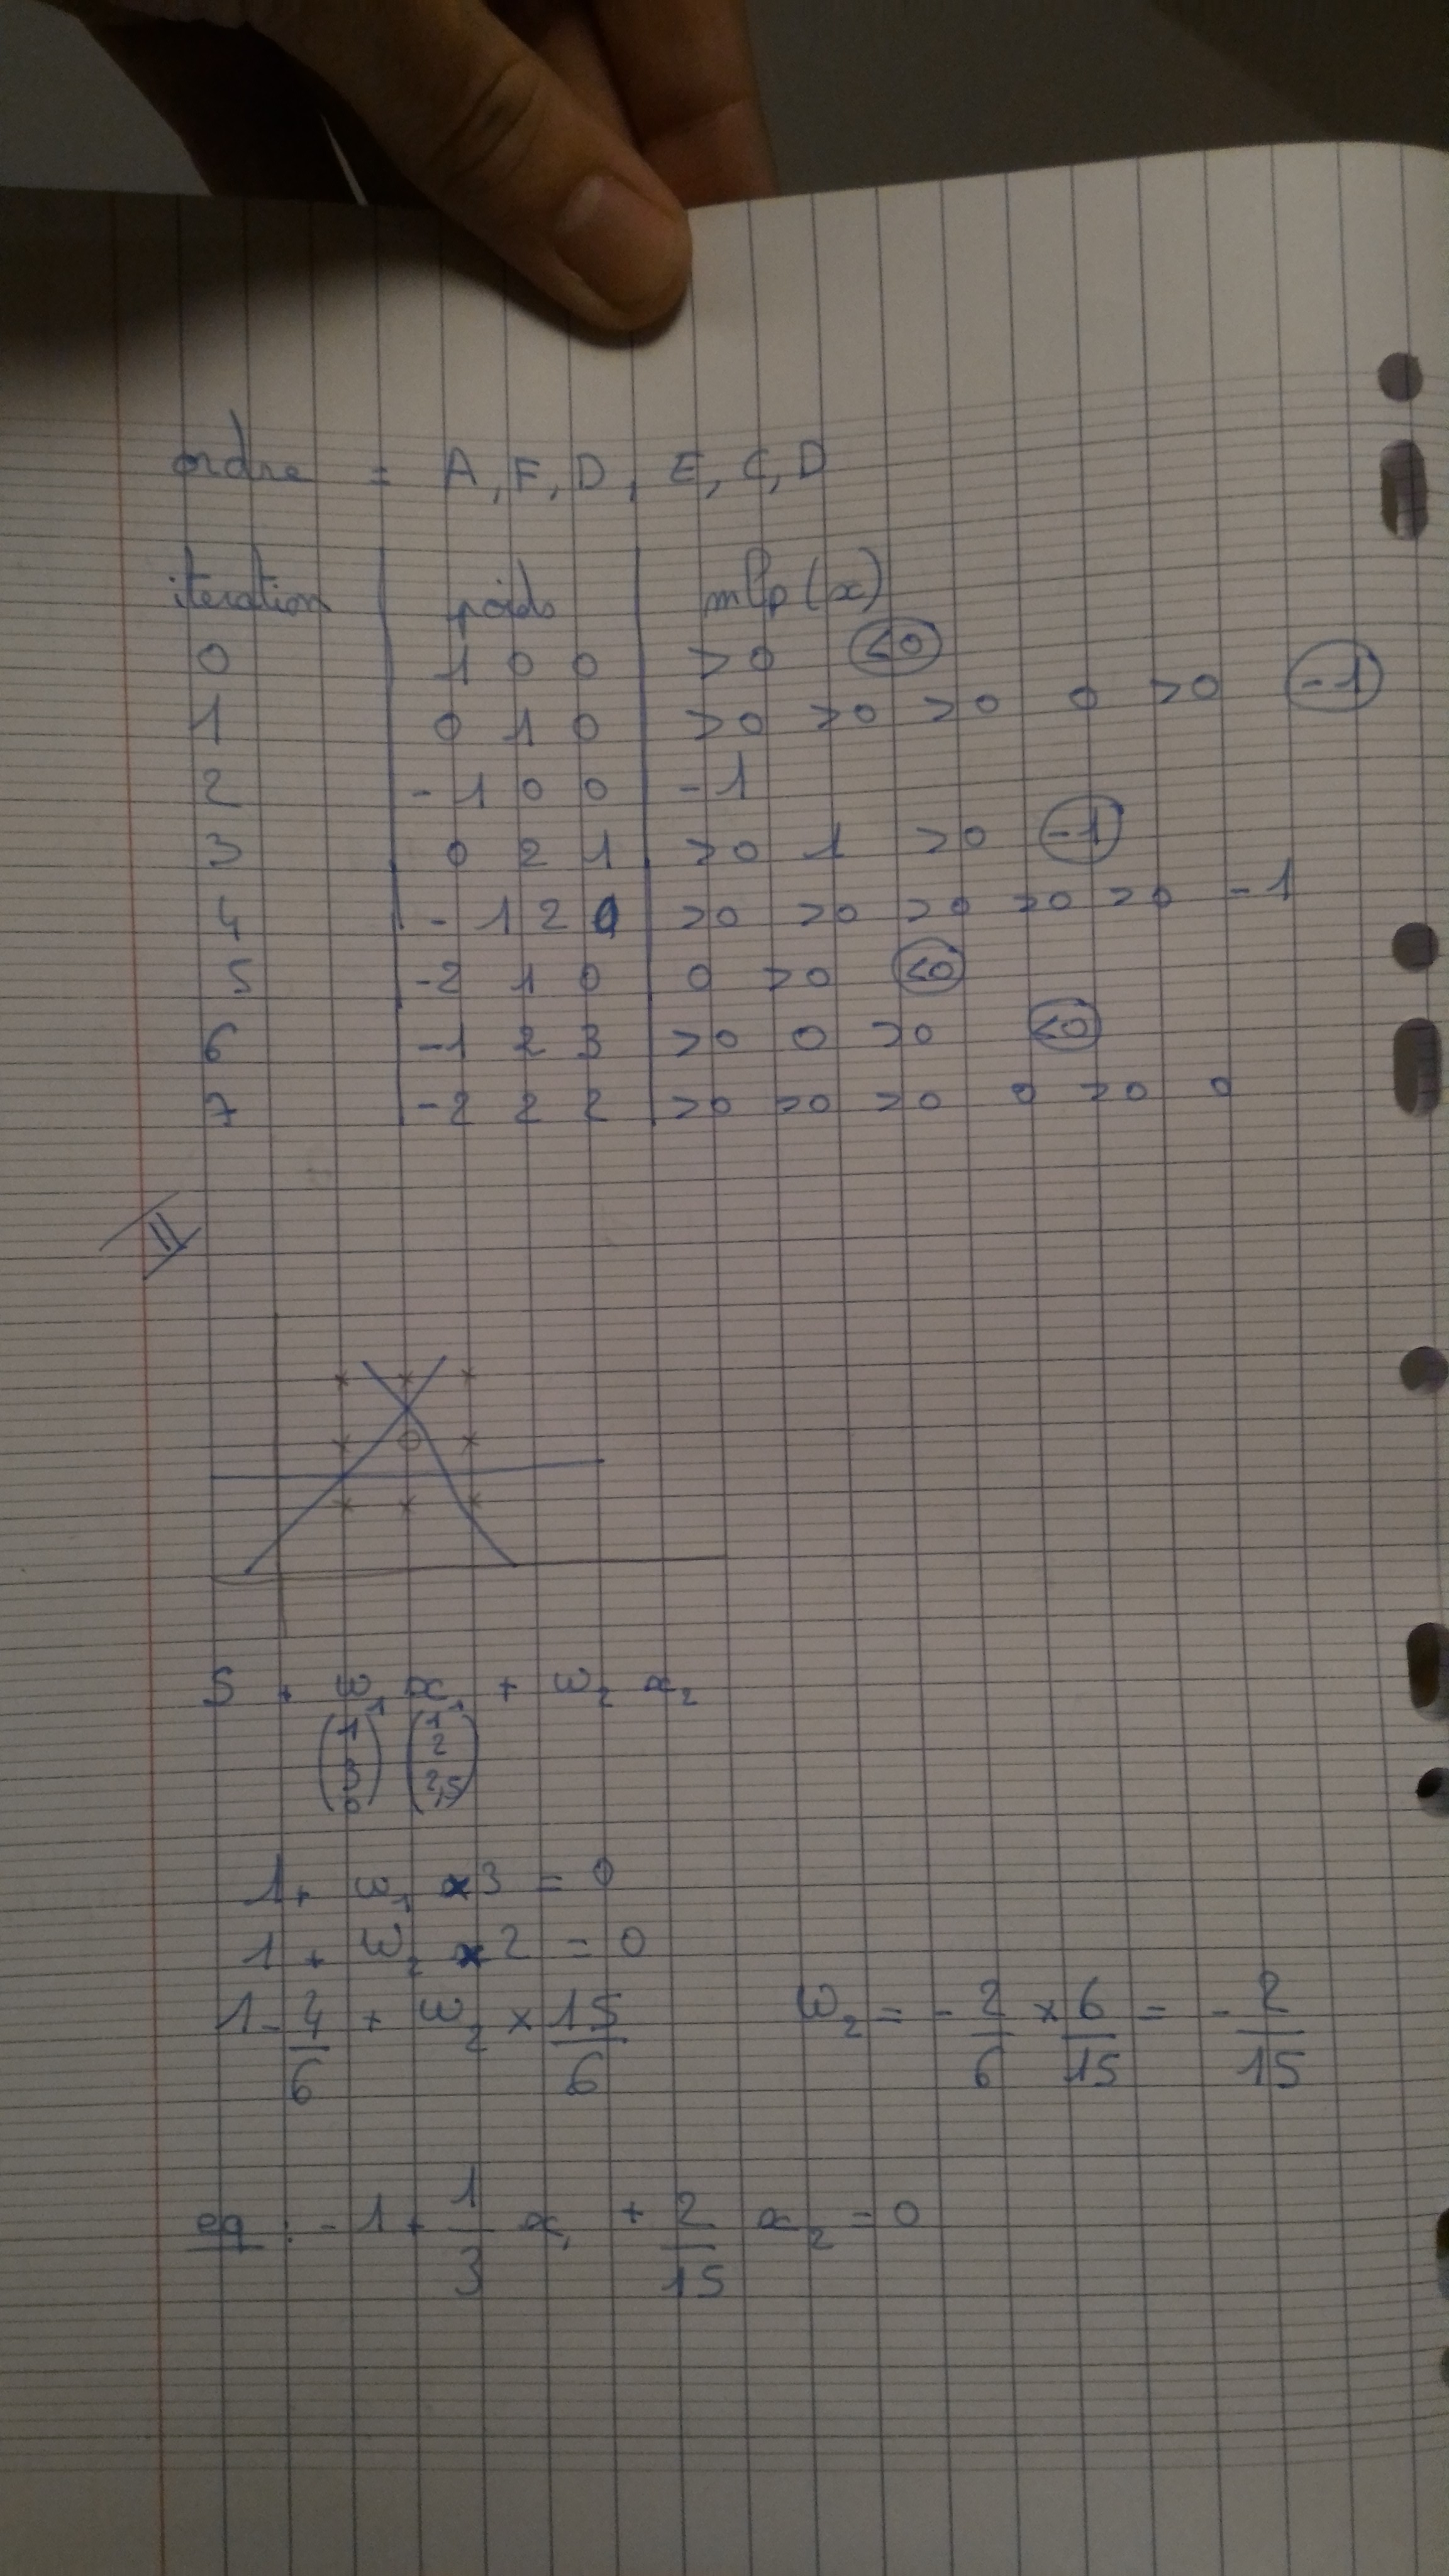 ordre = A, F, D, E, C, D
iteration poids mlp(x)
0 1 0 0 >0 <0
1 0 1 0 >0 >0 >0 0 >0 -1
2 -1 0 0 -1
3 0 2 1 >0 1 >0 -1
4 -1 2 0 >0 >0 >0 >0 >0 -1
5 -2 1 0 0 >0 <0
6 -1 2 3 >0 0 >0 <0
7 -2 2 2 >0 >0 >0 0 >0 0
II
S + w₁ x₁ + w₂ x₂
(1 3 0) (1 2 2,5)
1 + w₁ × 3 = 0
1 + w₂ × 2 = 0
1 - 4/6 + w₂ × 15/6 w₂ = - 2/6 × 6/15 = - 2/15
eq : -1 + 1/3 x₁ + 2/15 x₂ = 0